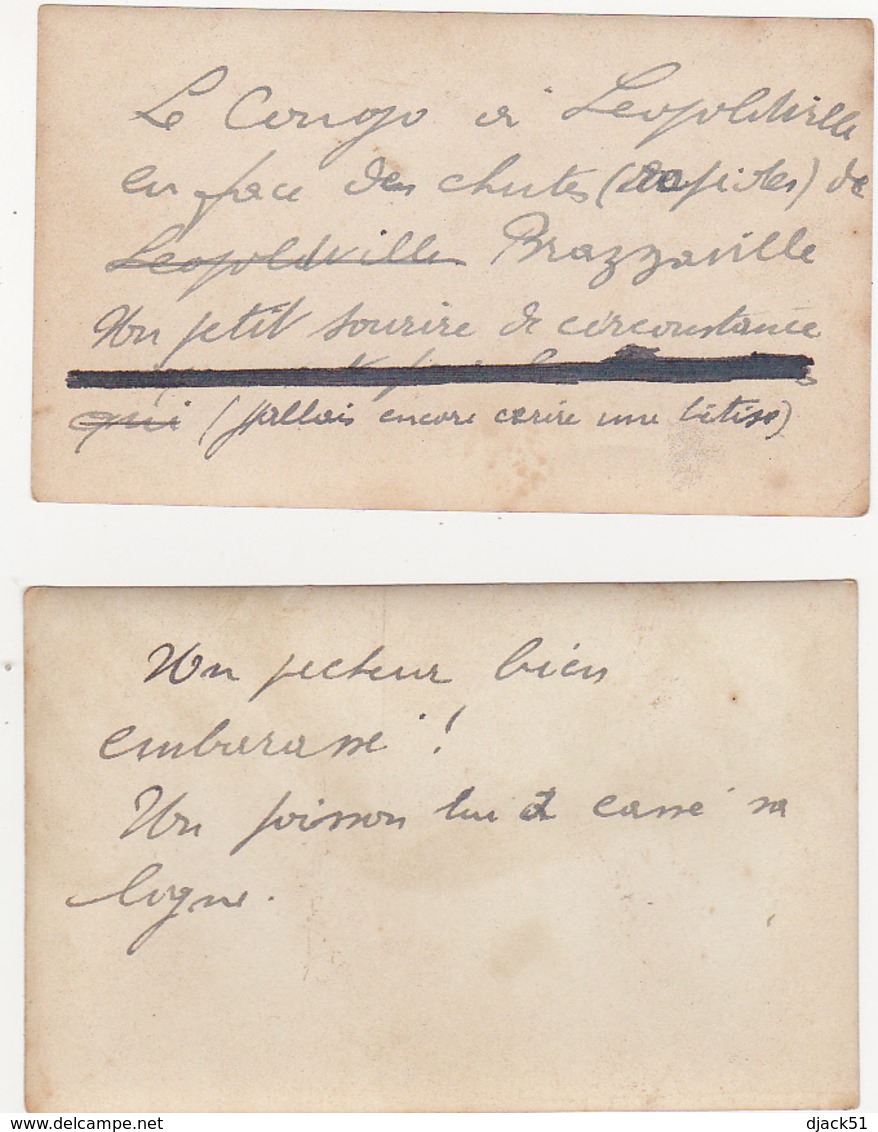 Le Congo à Leopoldville
en face des chutes (rapides) de
Leopoldville Brazzaville
Un petit sourire de circonstance
qui (j'allais encore ecrire une bêtise)
Un pecheur bien
embarassé !
Un poisson lui a cassé sa
ligne.
delcampe.net
djack51